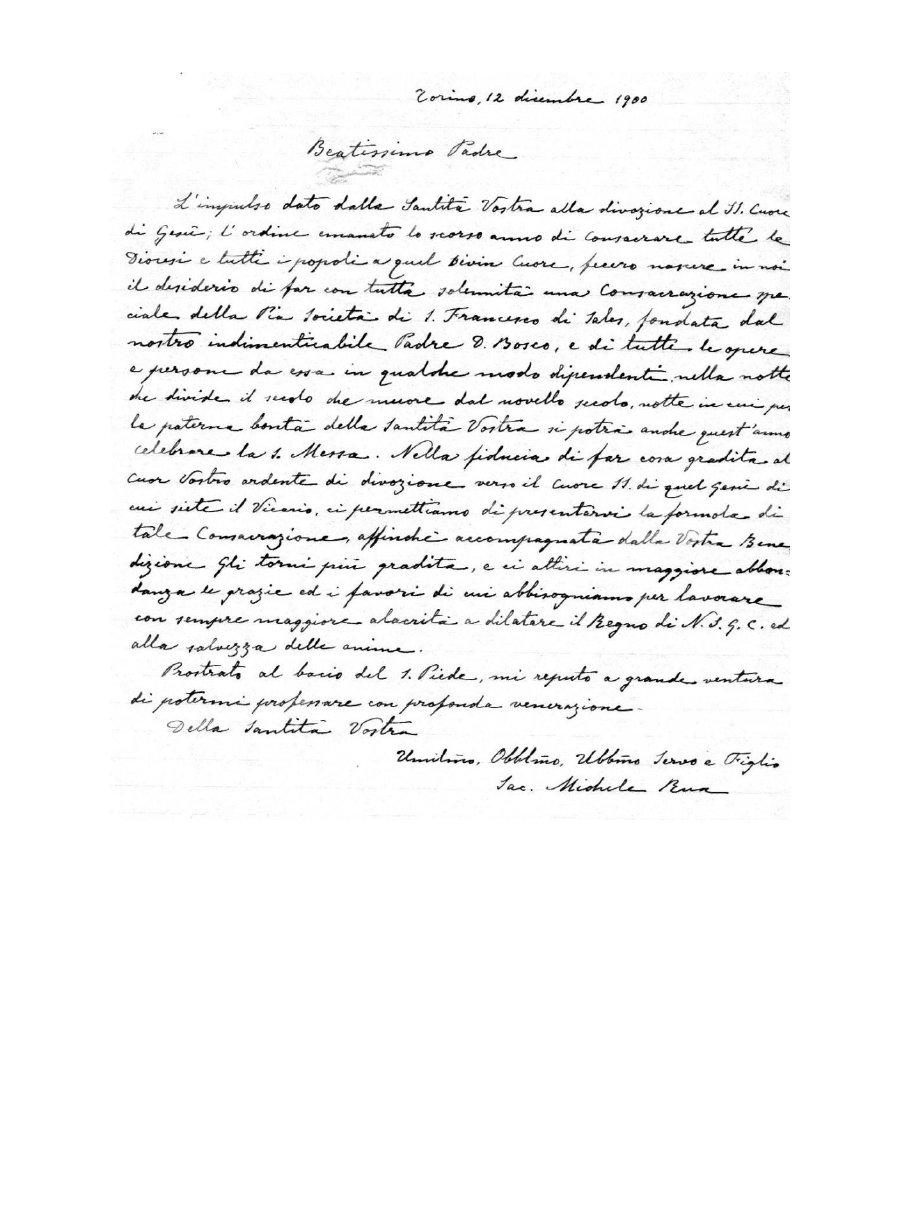 Torino, 12 dicembre 1900
Beatissimo Padre
L'impulso dato dalla Santità Vostra alla divozione al SS. Cuore
di Gesù; l'ordine emanato lo scorso anno di Consacrare tutte le
Diocesi e tutti i popoli a quel Divin Cuore, fecero nascere in noi
il desiderio di far con tutta solennità una Consacrazione spe-
ciale della Pia Società di S. Francesco di Sales, fondata dal
nostro indimenticabile Padre D. Bosco, e di tutte le opere
e persone da essa in qualche modo dipendenti, nella notte
che divide il secolo che muore dal novello secolo, notte in cui per
la paterna bontà della Santità Vostra si potrà anche quest'anno
celebrare la S. Messa. Nella fiducia di far cosa gradita al
Cuor Vostro ardente di divozione verso il Cuore SS. di quel Gesù di
cui siete il Vicario, ci permettiamo di presentarvi la formola di
tale Consacrazione, affinchè accompagnata dalla Vostra Bene
dizione Gli torni più gradita, e ci attiri in maggiore abbon=
danza le grazie ed i favori di cui abbisogniamo per lavorare
con sempre maggiore alacrità a dilatare il Regno di N. S. G. C. ed
alla salvezza delle anime.
Prostrato al bacio del S. Piede, mi reputo a grande ventura
di potermi professare con profonda venerazione
Della Santità Vostra
Umilmo, Obblmo, Ubbmo Servo e Figlio
Sac. Michele Rua